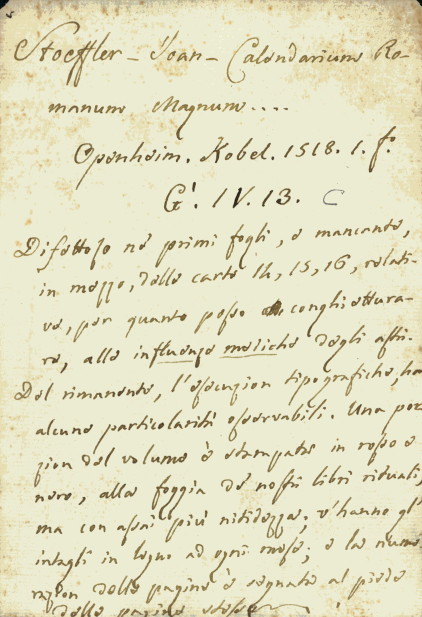 Stoeffler - Joan - Calendarium Ro-
manum Magnum....
Openheim. Kobel. 1518. 1. f.
G. IV. 13. C
Difettoso ne' primi fogli, e mancante,
in mezzo, delle carte 14, 15, 16, relati-
ve, per quanto posso conghiettura-
re, alle influenze mediche degli astri.
Del rimanente, l'esecuzion tipografica, ha
alcune particolarità osservabili. Una por-
zion del volume è stampata in rosso e
nero, alla foggia de' nostri libri rituali,
ma con assai più nitidezza; v'hanno gl'
intagli in legno ad ogni mese; e la nume-
razion delle pagine è segnata al piede
delle pagine stesse